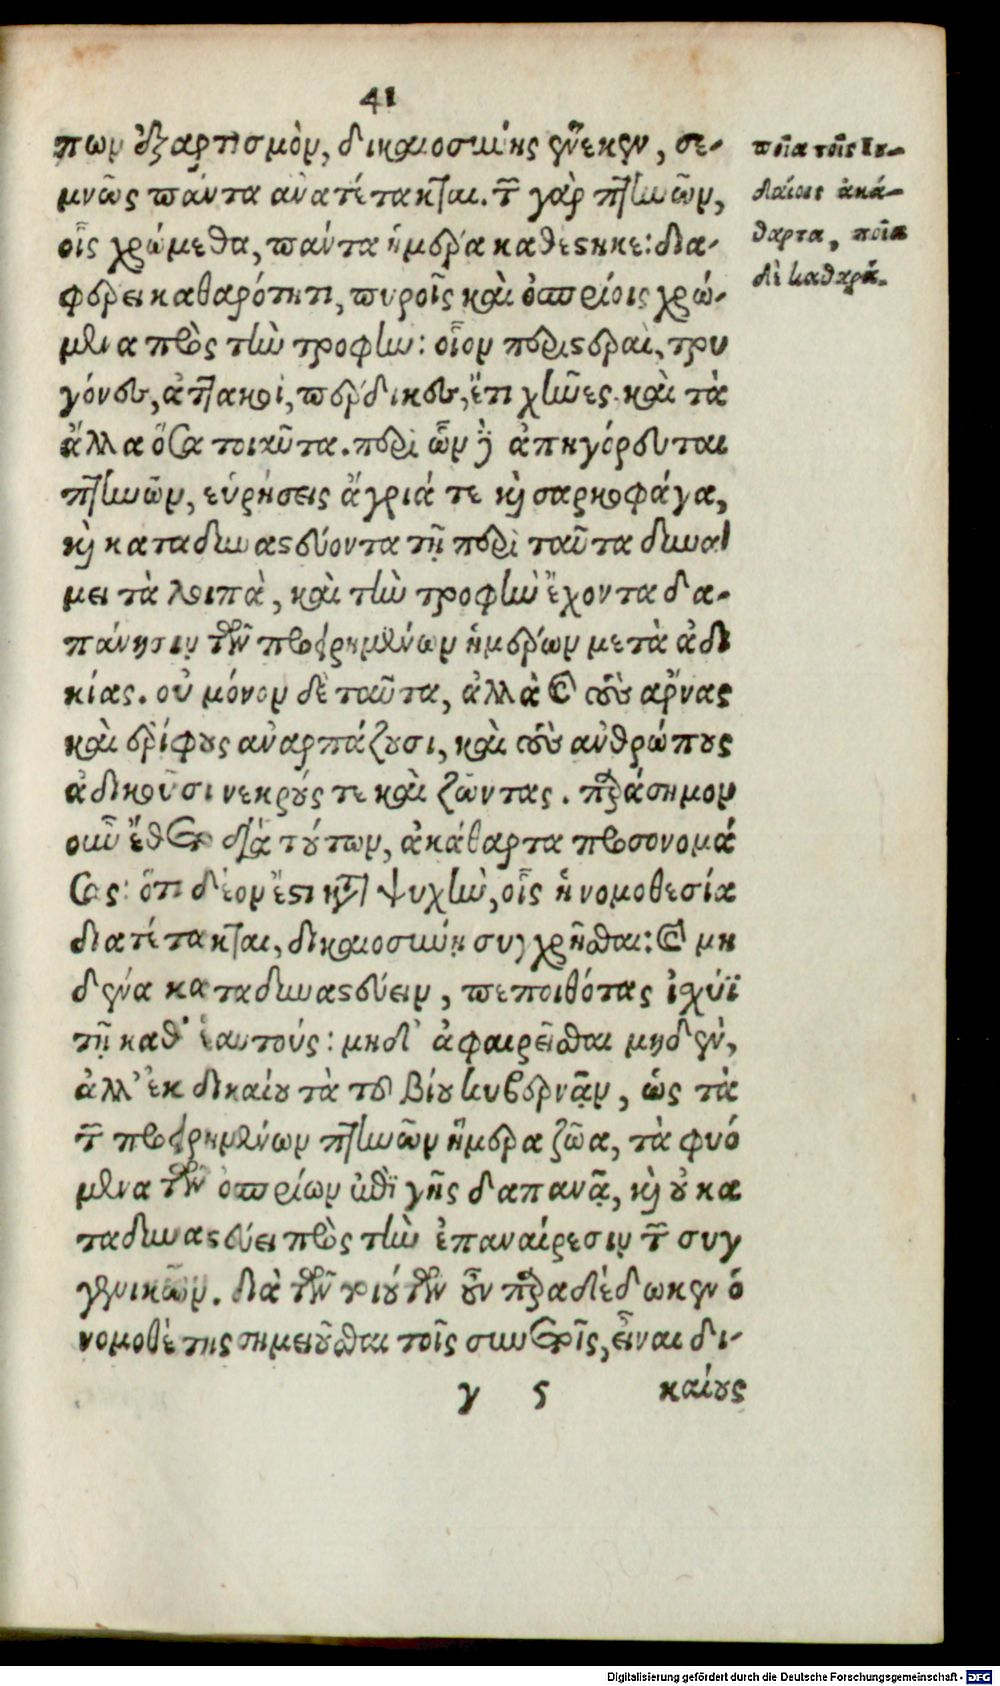 41
πων ἐξαρτισμὸν, δικαιοσύνης ἕνεκεν, σε-
μνῶς πάντα ἀνατέτακται. τῶν γὰρ πτηνῶν,
οἷς χρώμεθα, πάντα ἥμερα καθέστηκε: δια-
φέρει καθαρότητι, πυροῖς καὶ ὀσπρίοις χρώ-
μενα πρὸς τὴν τροφὴν: οἷον περιστεραὶ, τρυ
γόνες, ἀττακοὶ, πέρδικες, ἔτι χῆνες, καὶ τὰ
ἄλλα ὅσα τοιαῦτα. περὶ ὧν δὲ ἀπηγόρευται
πτηνῶν, εὑρήσεις ἄγριά τε καὶ σαρκοφάγα,
καὶ καταδυναστεύοντα τῇ περὶ ταῦτα δυνά
μει τὰ λοιπὰ, καὶ τὴν τροφὴν ἔχοντα δα-
πάνησιν τῶν προειρημένων ἡμέρων μετὰ ἀδι
κίας. οὐ μόνον δὲ ταῦτα, ἀλλὰ καὶ τοὺς ἄρνας
καὶ ἐρίφους ἀναρπάζουσι, καὶ τοὺς ἀνθρώπους
ἀδικοῦσι νεκρούς τε καὶ ζῶντας. παράσημον
οὖν ἔθετο διὰ τούτων, ἀκάθαρτα προσονομά
σας: ὅτι δέον ἐστι κατὰ ψυχὴν, οἷς ἡ νομοθεσία
διατέτακται, δικαιοσύνῃ συγχρῆσθαι: καὶ μη
δένα καταδυναστεύειν, πεποιθότας ἰσχύϊ
τῇ καθ' ἑαυτούς: μηδ' ἀφαιρεῖσθαι μηδὲν,
ἀλλ' ἐκ δικαίου τὰ τοῦ βίου κυβερνᾷν, ὡς τὰ
τῶν προειρημένων πτηνῶν ἥμερα ζῶα, τὰ φυό
μενα τῶν ὀσπρίων ἐπὶ γῆς δαπανᾷ, καὶ οὐ κα
ταδυναστεύει πρὸς τὴν ἐπαναίρεσιν τῶν συγ
γενικῶν. διὰ τῶν τοιούτων οὖν παραδέδωκεν ὁ
νομοθέτης σημειοῦσθαι τοῖς συνετοῖς, εἶναι δι-
γ 5 καίους
ποῖα τοῖς Ἰου-
δαίοις ἀκά-
θαρτα, ποῖα
δὲ καθαρά.
Digitalisierung gefördert durch die Deutsche Forschungsgemeinschaft - DFG